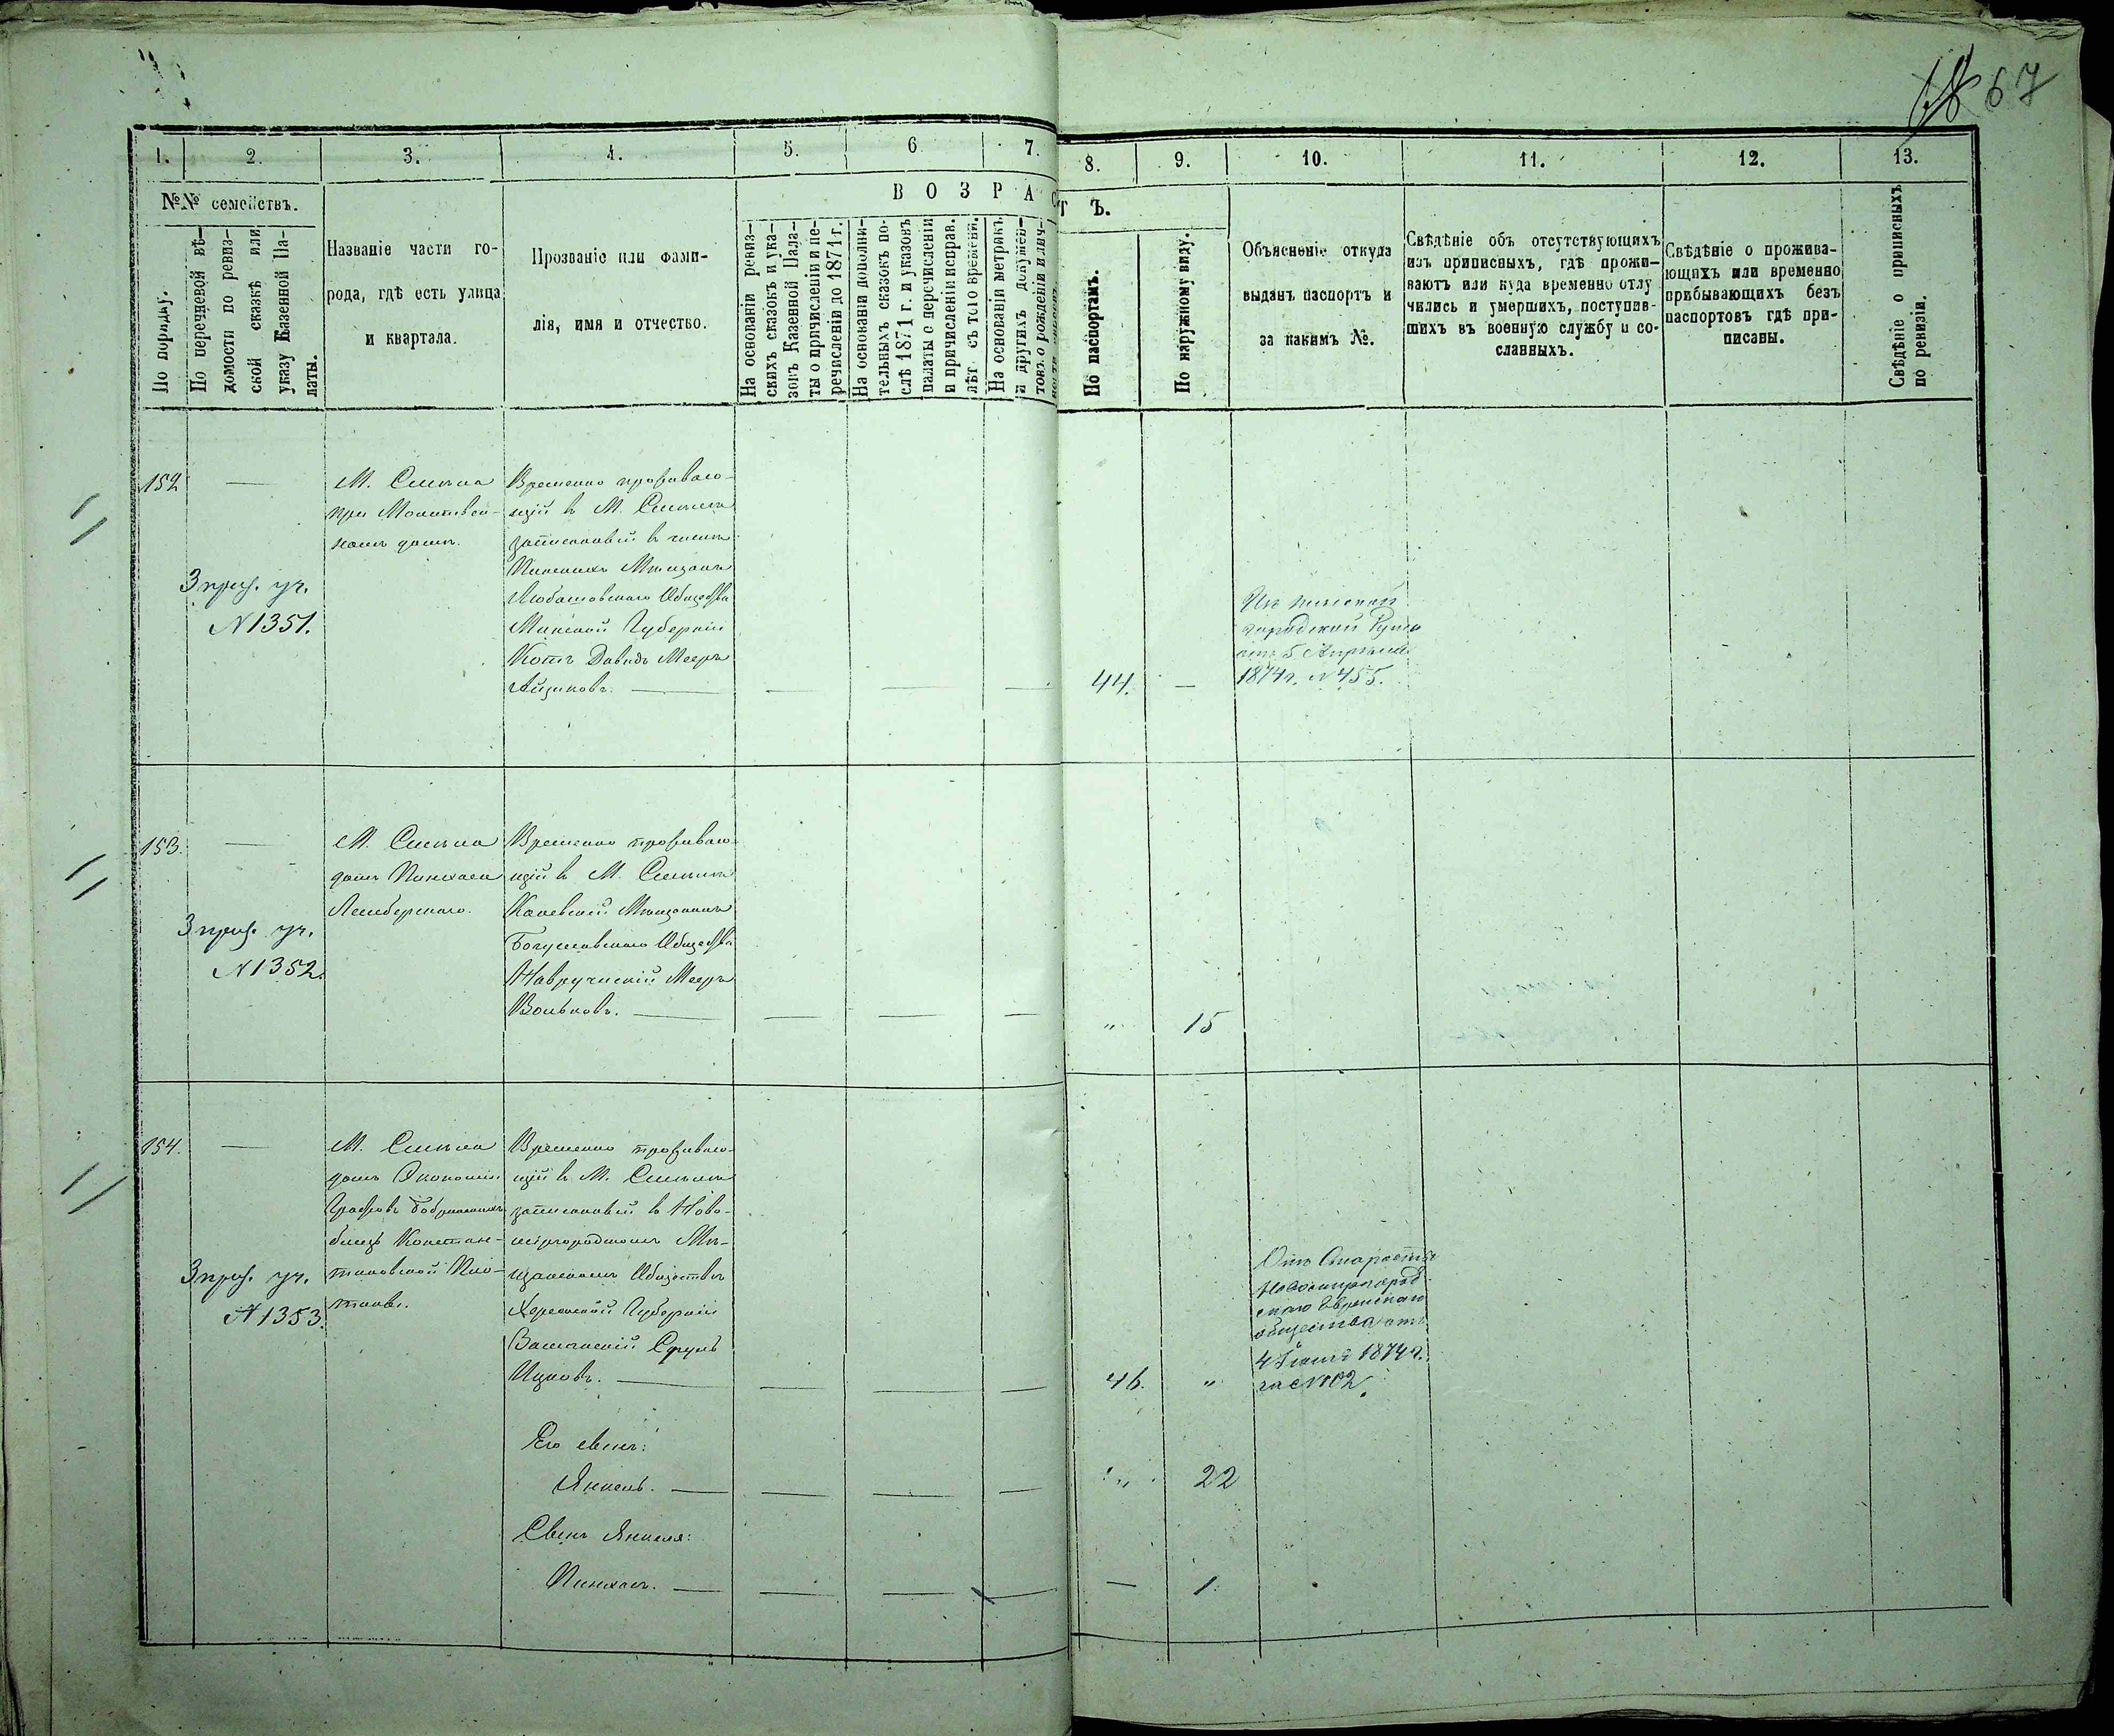 67
1. 2. 3. 4. 5. 6 7. 8. 9. 10. 11. 12. 13.
№№ семействъ.
По порядку.
По перечневой вѣ-
домости по ревиз-
ской сказкѣ или
указу Казенной Па-
латы.
Названіе части го-
рода, гдѣ есть улица
и квартала.
Прозваніе или фами-
лія, имя и отчество.
ВОЗРАСТЪ.
На основаніи ревиз-
скихъ сказокъ и ука-
зовъ Казенной Пала-
ты о причисленіи и пе-
речисленіи до 1871 г.
На основаніи дополни-
тельныхъ сказокъ по-
слѣ 1871 г. и указовъ
палаты о перечисленіи
и причисленіи исправ.
лѣт съ того времени.
На основаніи метрикъ
и другихъ докумен-
товъ о рожденіи и лич-
По паспортамъ.
По наружному виду.
Объясненіе откуда
выданъ паспортъ и
за какимъ №.
Свѣдѣніе объ отсутствующихъ
изъ приписныхъ, гдѣ прожи-
ваютъ или куда временно отлу
чились и умершихъ, поступив-
шихъ въ военную службу и со-
сланныхъ.
Свѣдѣніе о прожива-
ющихъ или временно
прибывающихъ безъ
паспортовъ гдѣ при-
писаны.
Свѣдѣніе о приписныхъ
по ревизіи.
152
3 приз. уч.
№ 1351.
М. Смѣла
при Молитвен-
номъ домѣ.
Временно проживаю-
щій въ М. Смѣлѣ
записанный въ числѣ
Пинскихъ Мѣщанъ
Любашовскаго Общества
Минской Губерніи
Котъ Давидъ Мееръ
Айзиковъ.
44.
Изъ Пинской
городской Думы
отъ 5 Апрѣля
1874 г. № 455.
153.
3 приз. уч.
№ 1352.
М. Смѣла
домъ Пинхаса
Лембергскаго.
Временно проживаю-
щій въ М. Смѣлѣ
Каневскій Мѣщанинъ
Богуславскаго Общества
Навручскій Мееръ
Вольковъ.
" 15
154.
3 приз. уч.
№ 1353.
М. Смѣла
домъ Экономіи
Графовъ Бобринскихъ
близь Констан-
тиновской
Временно проживаю-
щій въ М. Смѣлѣ
записанный въ Ново-
миргородскомъ Мѣ-
щанскомъ Обществѣ
Херсонской Губерніи
Срулъ
Ицковъ.
46. "
Отъ Старосты
Новомиргород-
скаго Еврейскаго
общества отъ
1874 г.
Его сынъ:
Янкель.
" 22
Сынъ Янкеля:
Пинхасъ.
1.